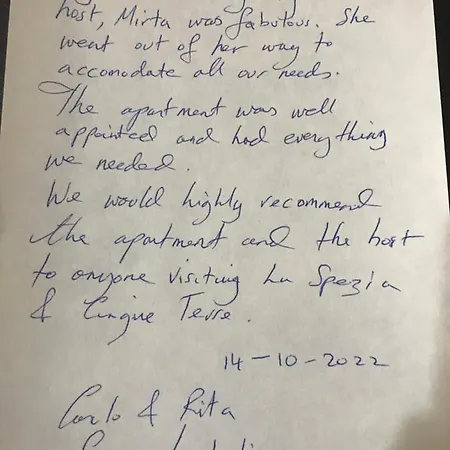 host, Mirta was fabulous. She
went out of her way to
accomodate all our needs.
The apartment was well
appointed and had everything
we needed.
We would highly recommend
the apartment and the host
to anyone visiting La Spezia
& Cinque Terre.
14-10-2022
Carlo & Rita